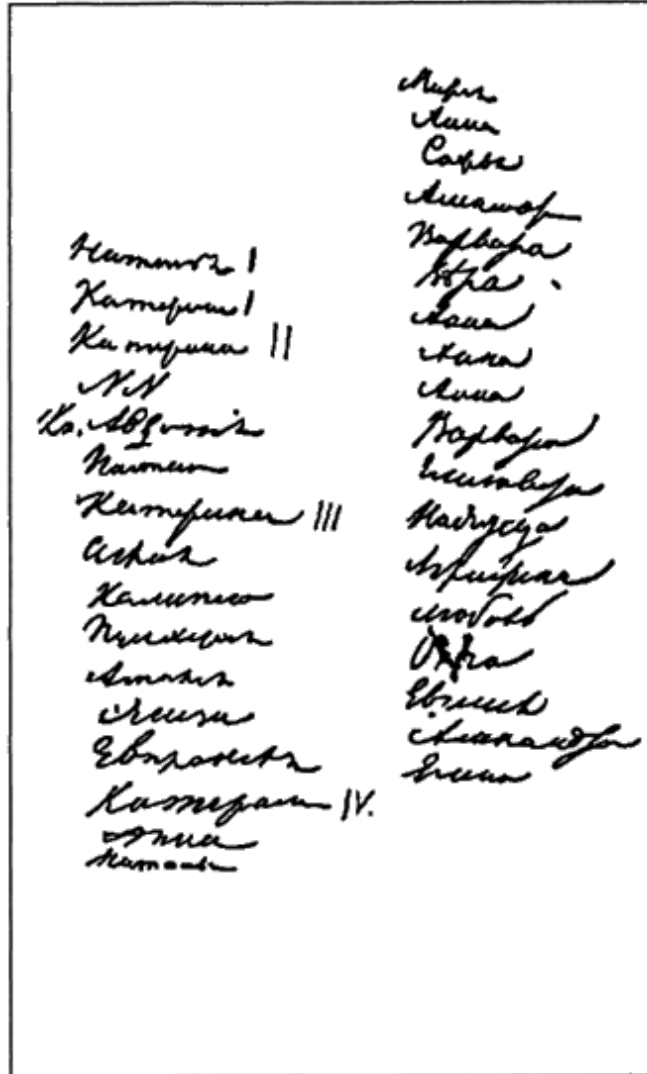 Наталья I
Катерина I
Катерина II
NN
Кн. Авдотия
Настасья
Катерина III
Аглая
Калипсо
Пулхерия
Амалия
Элиза
Евпраксея
Катерина IV.
Анна
Наталья
Мария
Анна
Софья
Александра
Варвара
Вера
Анна
Анна
Анна
Варвара
Елизавета
Надежда
Аграфена
Любовь
Ольга
Евгения
Александра
Елена